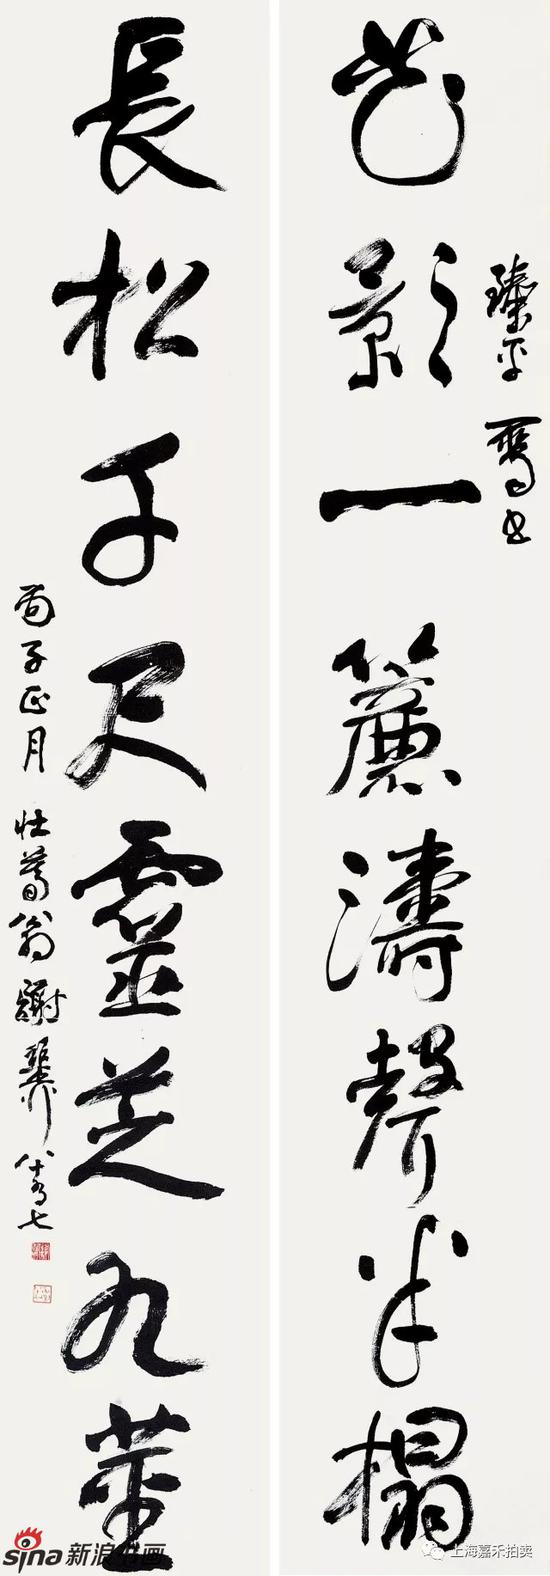 花影一簾濤聲半榻
平 書
長松千尺靈芝九莖
丙子正月 壯暮翁 謝稚柳 八十有七
sina 新浪书画
上海嘉禾拍卖